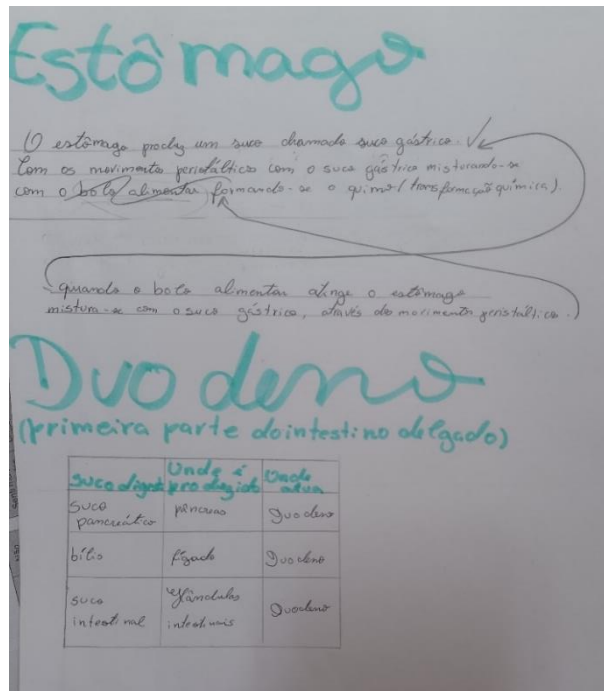 Estômago
O estômago produz um suco chamado suco gástrico.
Com os movimentos peristálticos com o suco gástrico misturando-se
com o bolo alimentar formando-se o quimo (transformação química).
quando o bolo alimentar atinge o estômago
mistura-se com o suco gástrico, através do movimento peristáltico.
Duodeno
(primeira parte do intestino delgado)
suco digest Onde é produzido Onde atua
suco pancreático pâncreas Duodeno
bílis fígado Duodeno
suco intestinal glândulas intestinais Duodeno